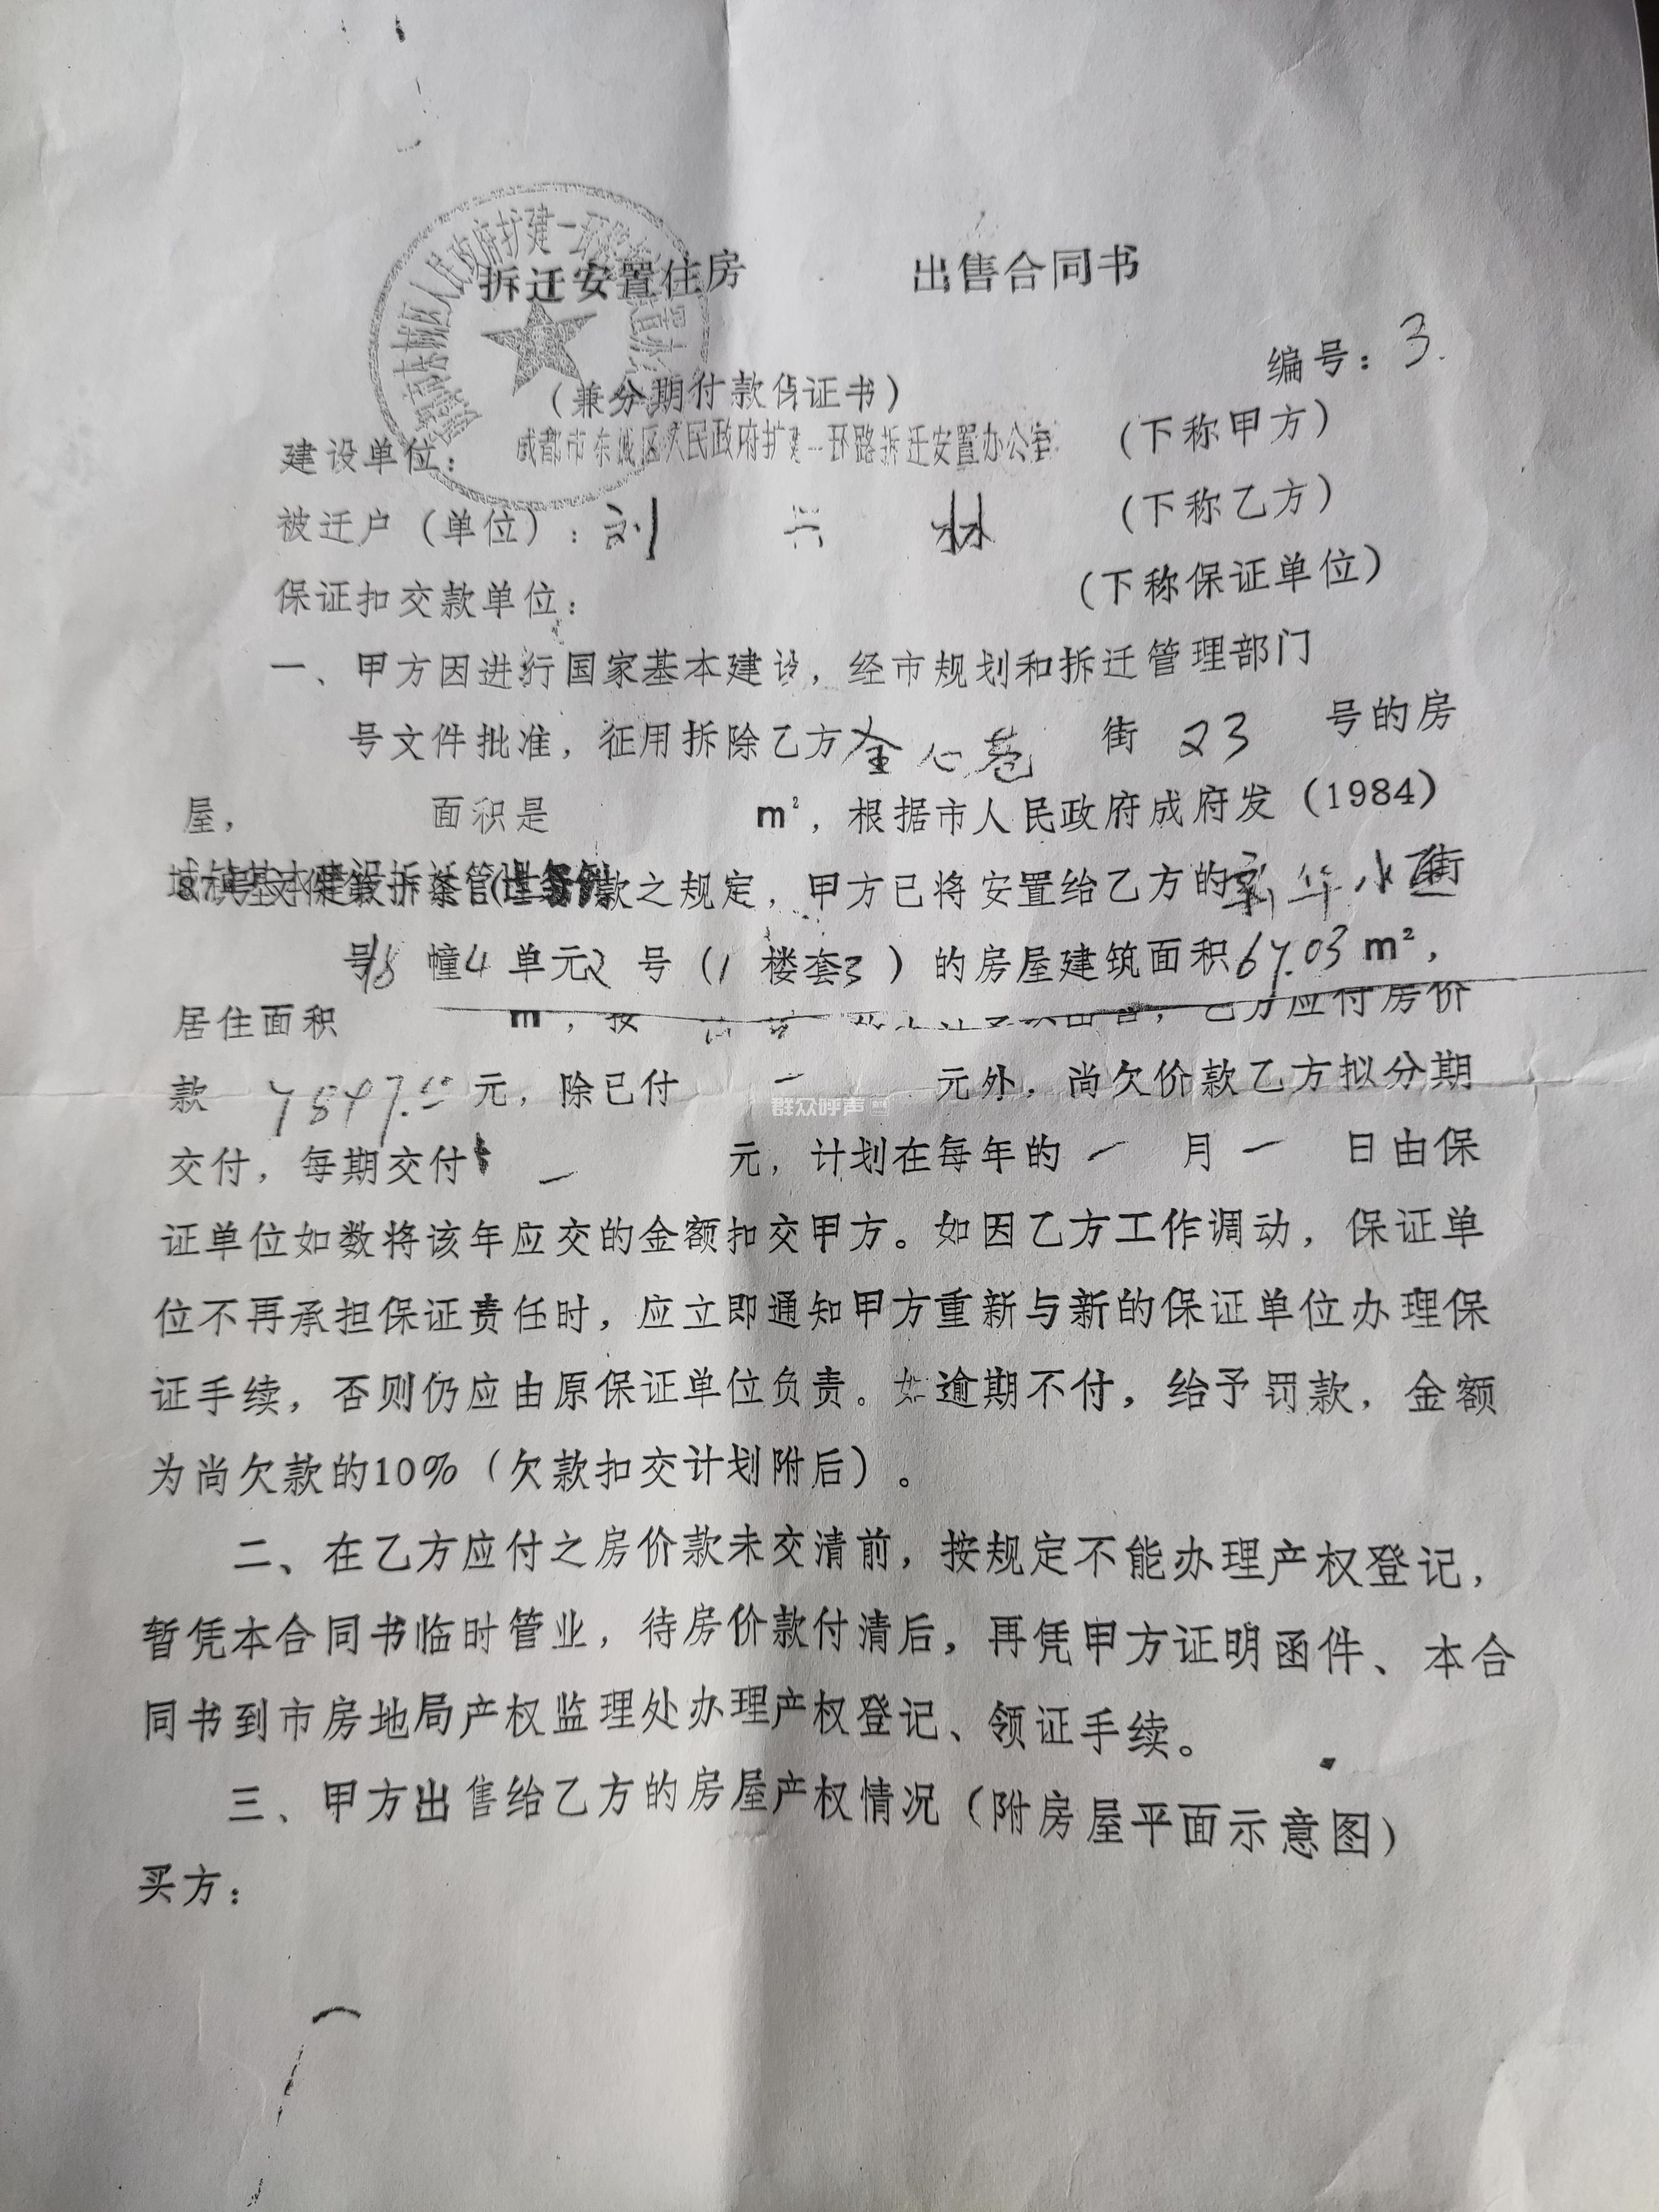 拆迁安置住房 出售合同书
编号：3.
（兼分期付款保证书）
建设单位：成都市东城区人民政府扩建一环路拆迁安置办公室 （下称甲方）
被迁户（单位）：刘 兴 林 （下称乙方）
保证扣交款单位： （下称保证单位）
一、甲方因进行国家基本建设，经市规划和拆迁管理部门
号文件批准，征用拆除乙方 街 23 号的房
屋， 面积是 m²，根据市人民政府成府发（1984）
款之规定，甲方已将安置给乙方的新华 街
号 幢4单元2号（1楼套3）的房屋建筑面积 m²，
居住面积 m²，按 出售，乙方应付房价
款 元，除已付 一 元外，尚欠价款乙方拟分期
群众呼声
交付，每期交付 一 元，计划在每年的 一 月 一 日由保
证单位如数将该年应交的金额扣交甲方。如因乙方工作调动，保证单
位不再承担保证责任时，应立即通知甲方重新与新的保证单位办理保
证手续，否则仍应由原保证单位负责。如逾期不付，给予罚款，金额
为尚欠款的10%（欠款扣交计划附后）。
二、在乙方应付之房价款未交清前，按规定不能办理产权登记，
暂凭本合同书临时管业，待房价款付清后，再凭甲方证明函件、本合
同书到市房地局产权监理处办理产权登记、领证手续。
三、甲方出售给乙方的房屋产权情况（附房屋平面示意图）
买方：